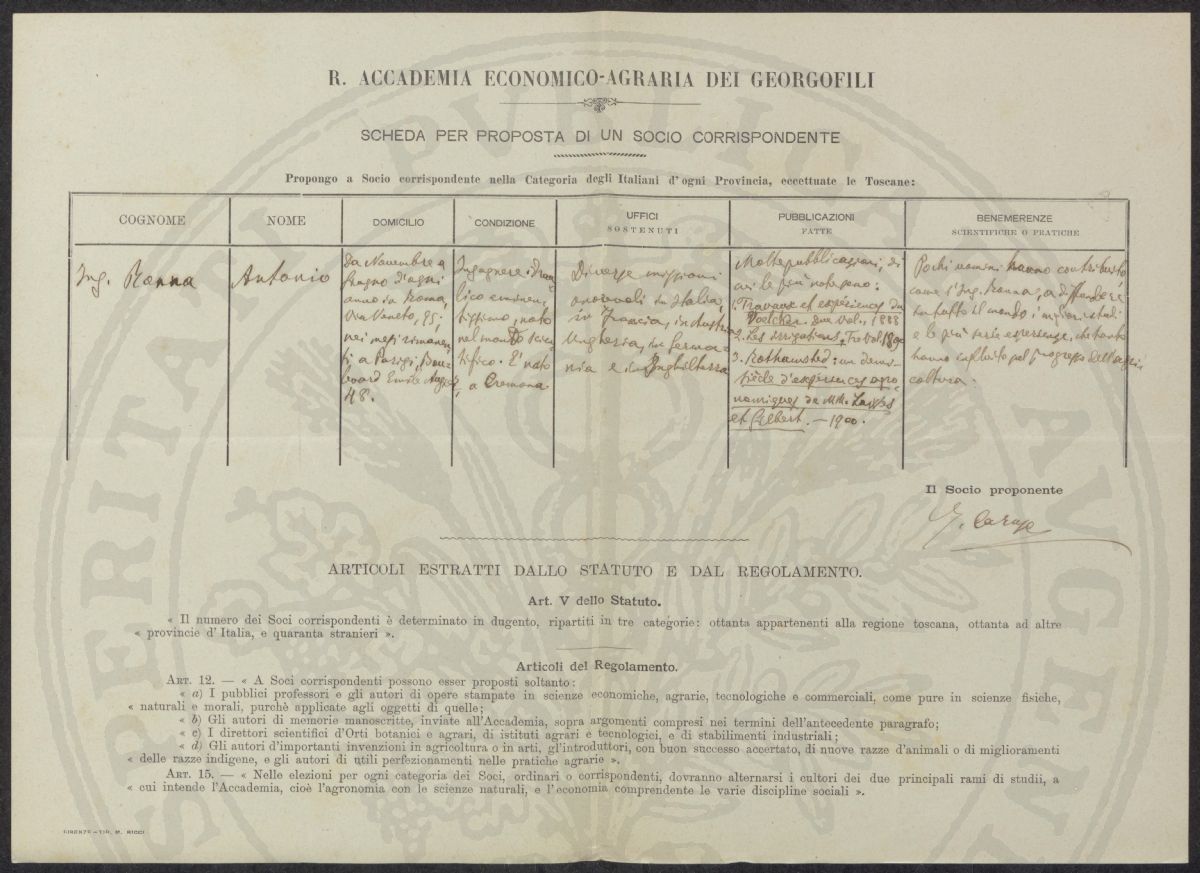 R. ACCADEMIA ECONOMICO-AGRARIA DEI GEORGOFILI
SCHEDA PER PROPOSTA DI UN SOCIO CORRISPONDENTE
Propongo a Socio corrispondente nella Categoria degli Italiani d'ogni Provincia, eccettuate le Toscane:
COGNOME
NOME
DOMICILIO
CONDIZIONE
UFFICI
SOSTENUTI
PUBBLICAZIONI
FATTE
BENEMERENZE
SCIENTIFICHE O PRATICHE
Ing. Ronna
Antonio
Da Novembre a
Giugno d'ogni
anno in Roma,
Via Veneto, 95;
nei mesi rimanen-
ti a Parigi, Bou-
Emile Augier
48.
Ingegnere idrau-
lico eminen-
tissimo, noto
nel mondo scien-
tifico. È nato
a Cremona
Diverse missioni
onorevoli in Italia,
in Francia, in Austria
Ungheria, in Germa-
nia e in Inghilterra
Molte pubblicazioni, di
cui le più note sono:
1. Travaux et expériences du
Voelcker. due vol., 1888
2. Les irrigations, Tre vol. 1890
3. Rothamsted: un demi-
siècle d'expériences agro-
nomiques de MM. Lawes
et Gilbert. — 1900.
Pochi uomini hanno contribuito,
come l'Ing. Ronna, a diffondere
in tutto il mondo i migliori studi
e le più serie esperienze, che tanto
hanno influito sul progresso dell'agri-
coltura.
Il Socio proponente
G. Caruso
ARTICOLI ESTRATTI DALLO STATUTO E DAL REGOLAMENTO.
Art. V dello Statuto.
« Il numero dei Soci corrispondenti è determinato in dugento, ripartiti in tre categorie: ottanta appartenenti alla regione toscana, ottanta ad altre
« provincie d'Italia, e quaranta stranieri ».
Articoli del Regolamento.
ART. 12. — « A Soci corrispondenti possono esser proposti soltanto:
« a) I pubblici professori e gli autori di opere stampate in scienze economiche, agrarie, tecnologiche e commerciali, come pure in scienze fisiche,
« naturali e morali, purchè applicate agli oggetti di quelle;
« b) Gli autori di memorie manoscritte, inviate all'Accademia, sopra argomenti compresi nei termini dell'antecedente paragrafo;
« c) I direttori scientifici d'Orti botanici e agrari, di istituti agrari e tecnologici, e di stabilimenti industriali;
« d) Gli autori d'importanti invenzioni in agricoltura o in arti, gl'introduttori, con buon successo accertato, di nuove razze d'animali o di miglioramenti
« delle razze indigene, e gli autori di utili perfezionamenti nelle pratiche agrarie ».
ART. 15. — « Nelle elezioni per ogni categoria dei Soci, ordinari o corrispondenti, dovranno alternarsi i cultori dei due principali rami di studii, a
« cui intende l'Accademia, cioè l'agronomia con le scienze naturali, e l'economia comprendente le varie discipline sociali ».
FIRENZE – TIP. M. RICCI
PROSPERITATI PVBLICAE AVGENDAE